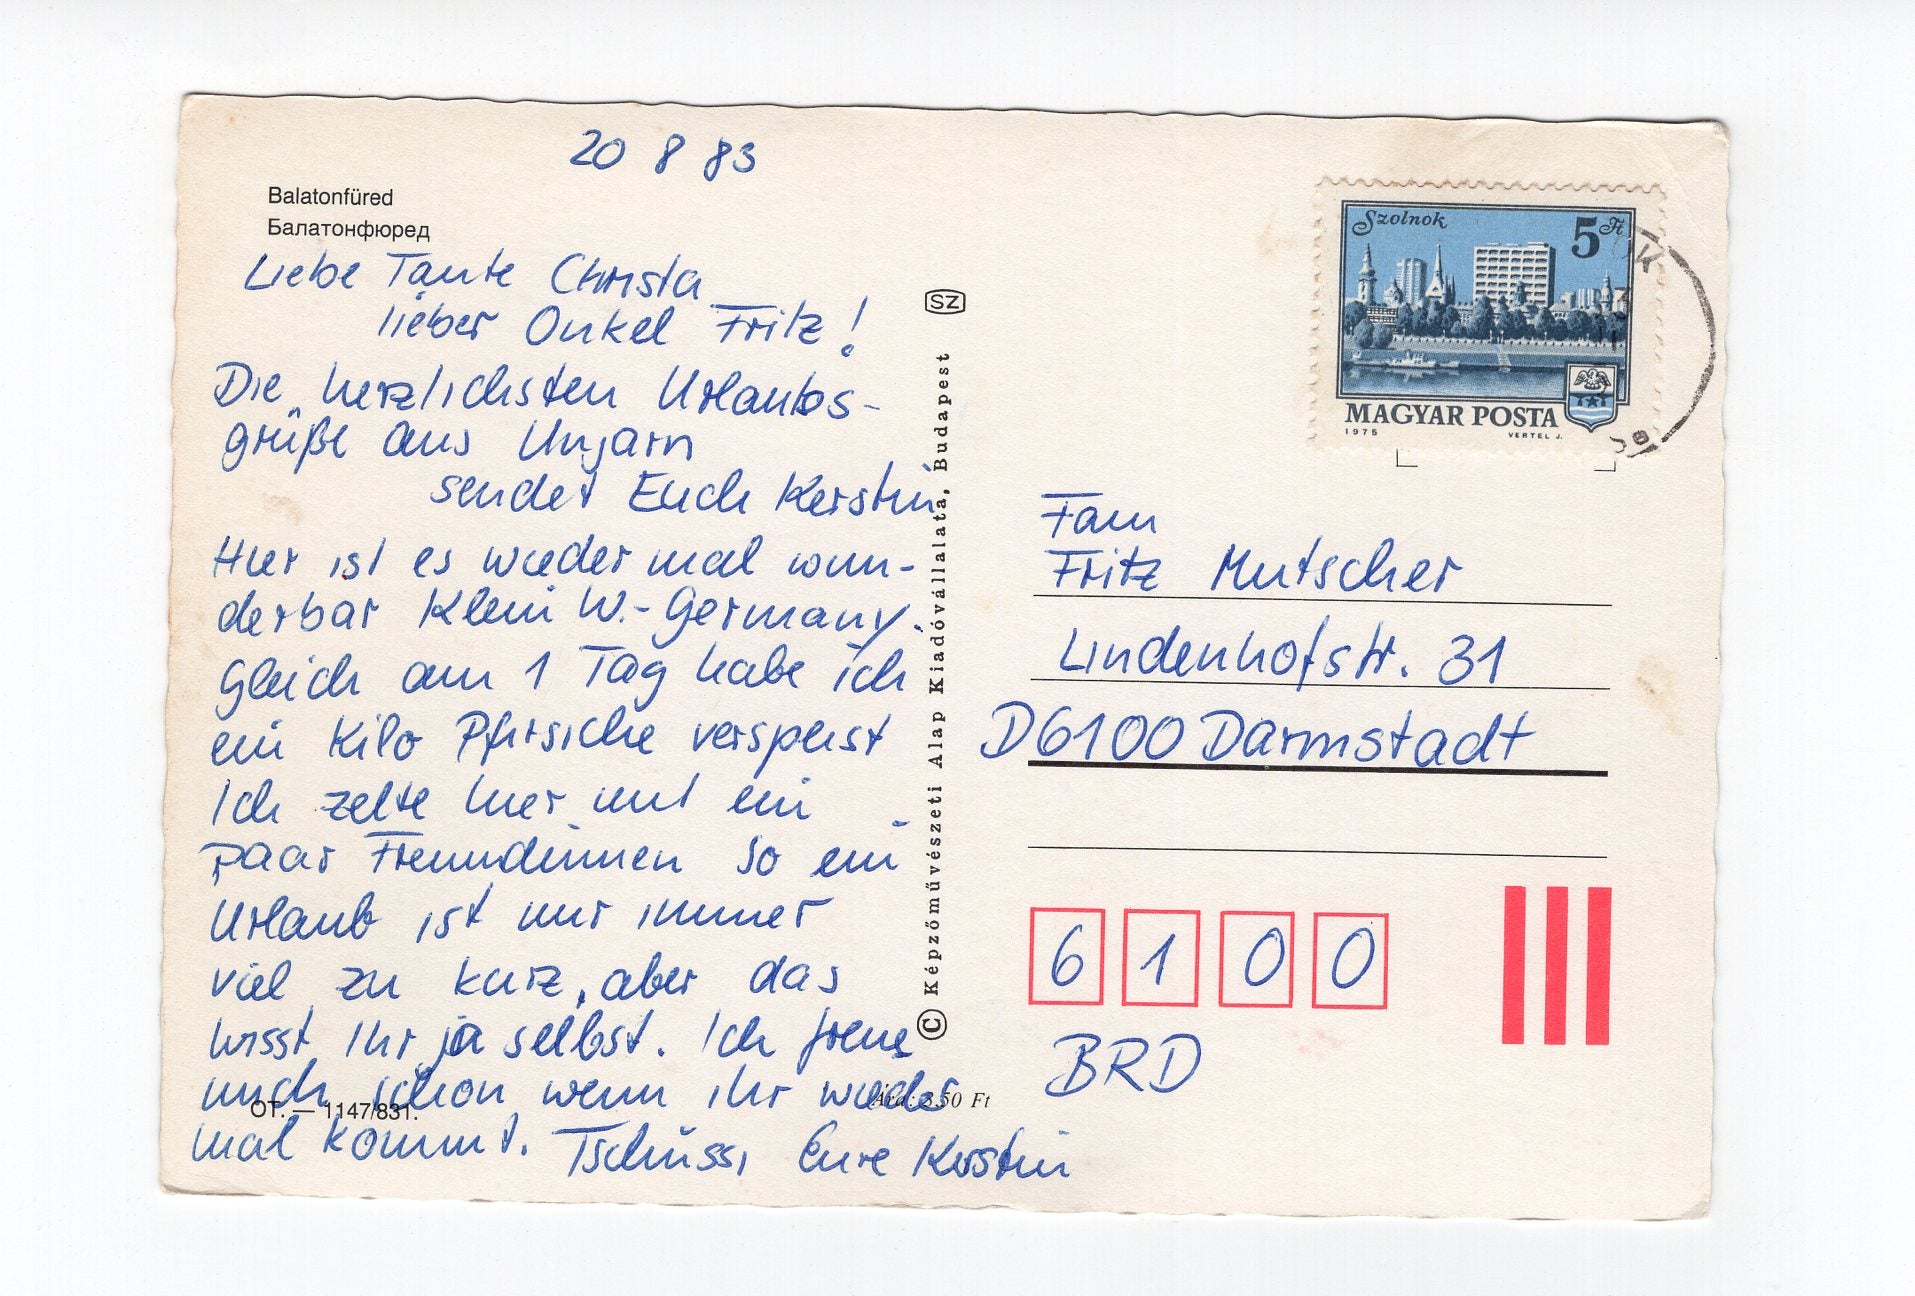 20 8 83
Balatonfüred
Балатонфюред
Liebe Tante Christa
lieber Onkel Fritz!
Die herzlichsten Urlaubs-
grüße aus Ungarn
sendet Euch Kerstin
Hier ist es wieder mal wun-
derbar Klein W.-Germany.
Gleich am 1 Tag habe ich
ein Kilo Pfirsiche verspeist
Ich zelte hier mit ein
paar Freundinnen So ein
Urlaub ist mir immer
viel zu kurz, aber das
wisst Ihr ja selbst. Ich freue
mich schon wenn ihr wieder
mal kommt. Tschüss, Eure Kerstin
OT. — 1147/831.
Ára: 3,50 Ft
SZ
© Képzőművészeti Alap Kiadóvállalata, Budapest
Szolnok 5 Ft
MAGYAR POSTA
1975 VERTEL J.
Fam
Fritz Mutscher
Lindenhofstr. 31
D6100 Darmstadt
6 1 0 0
BRD